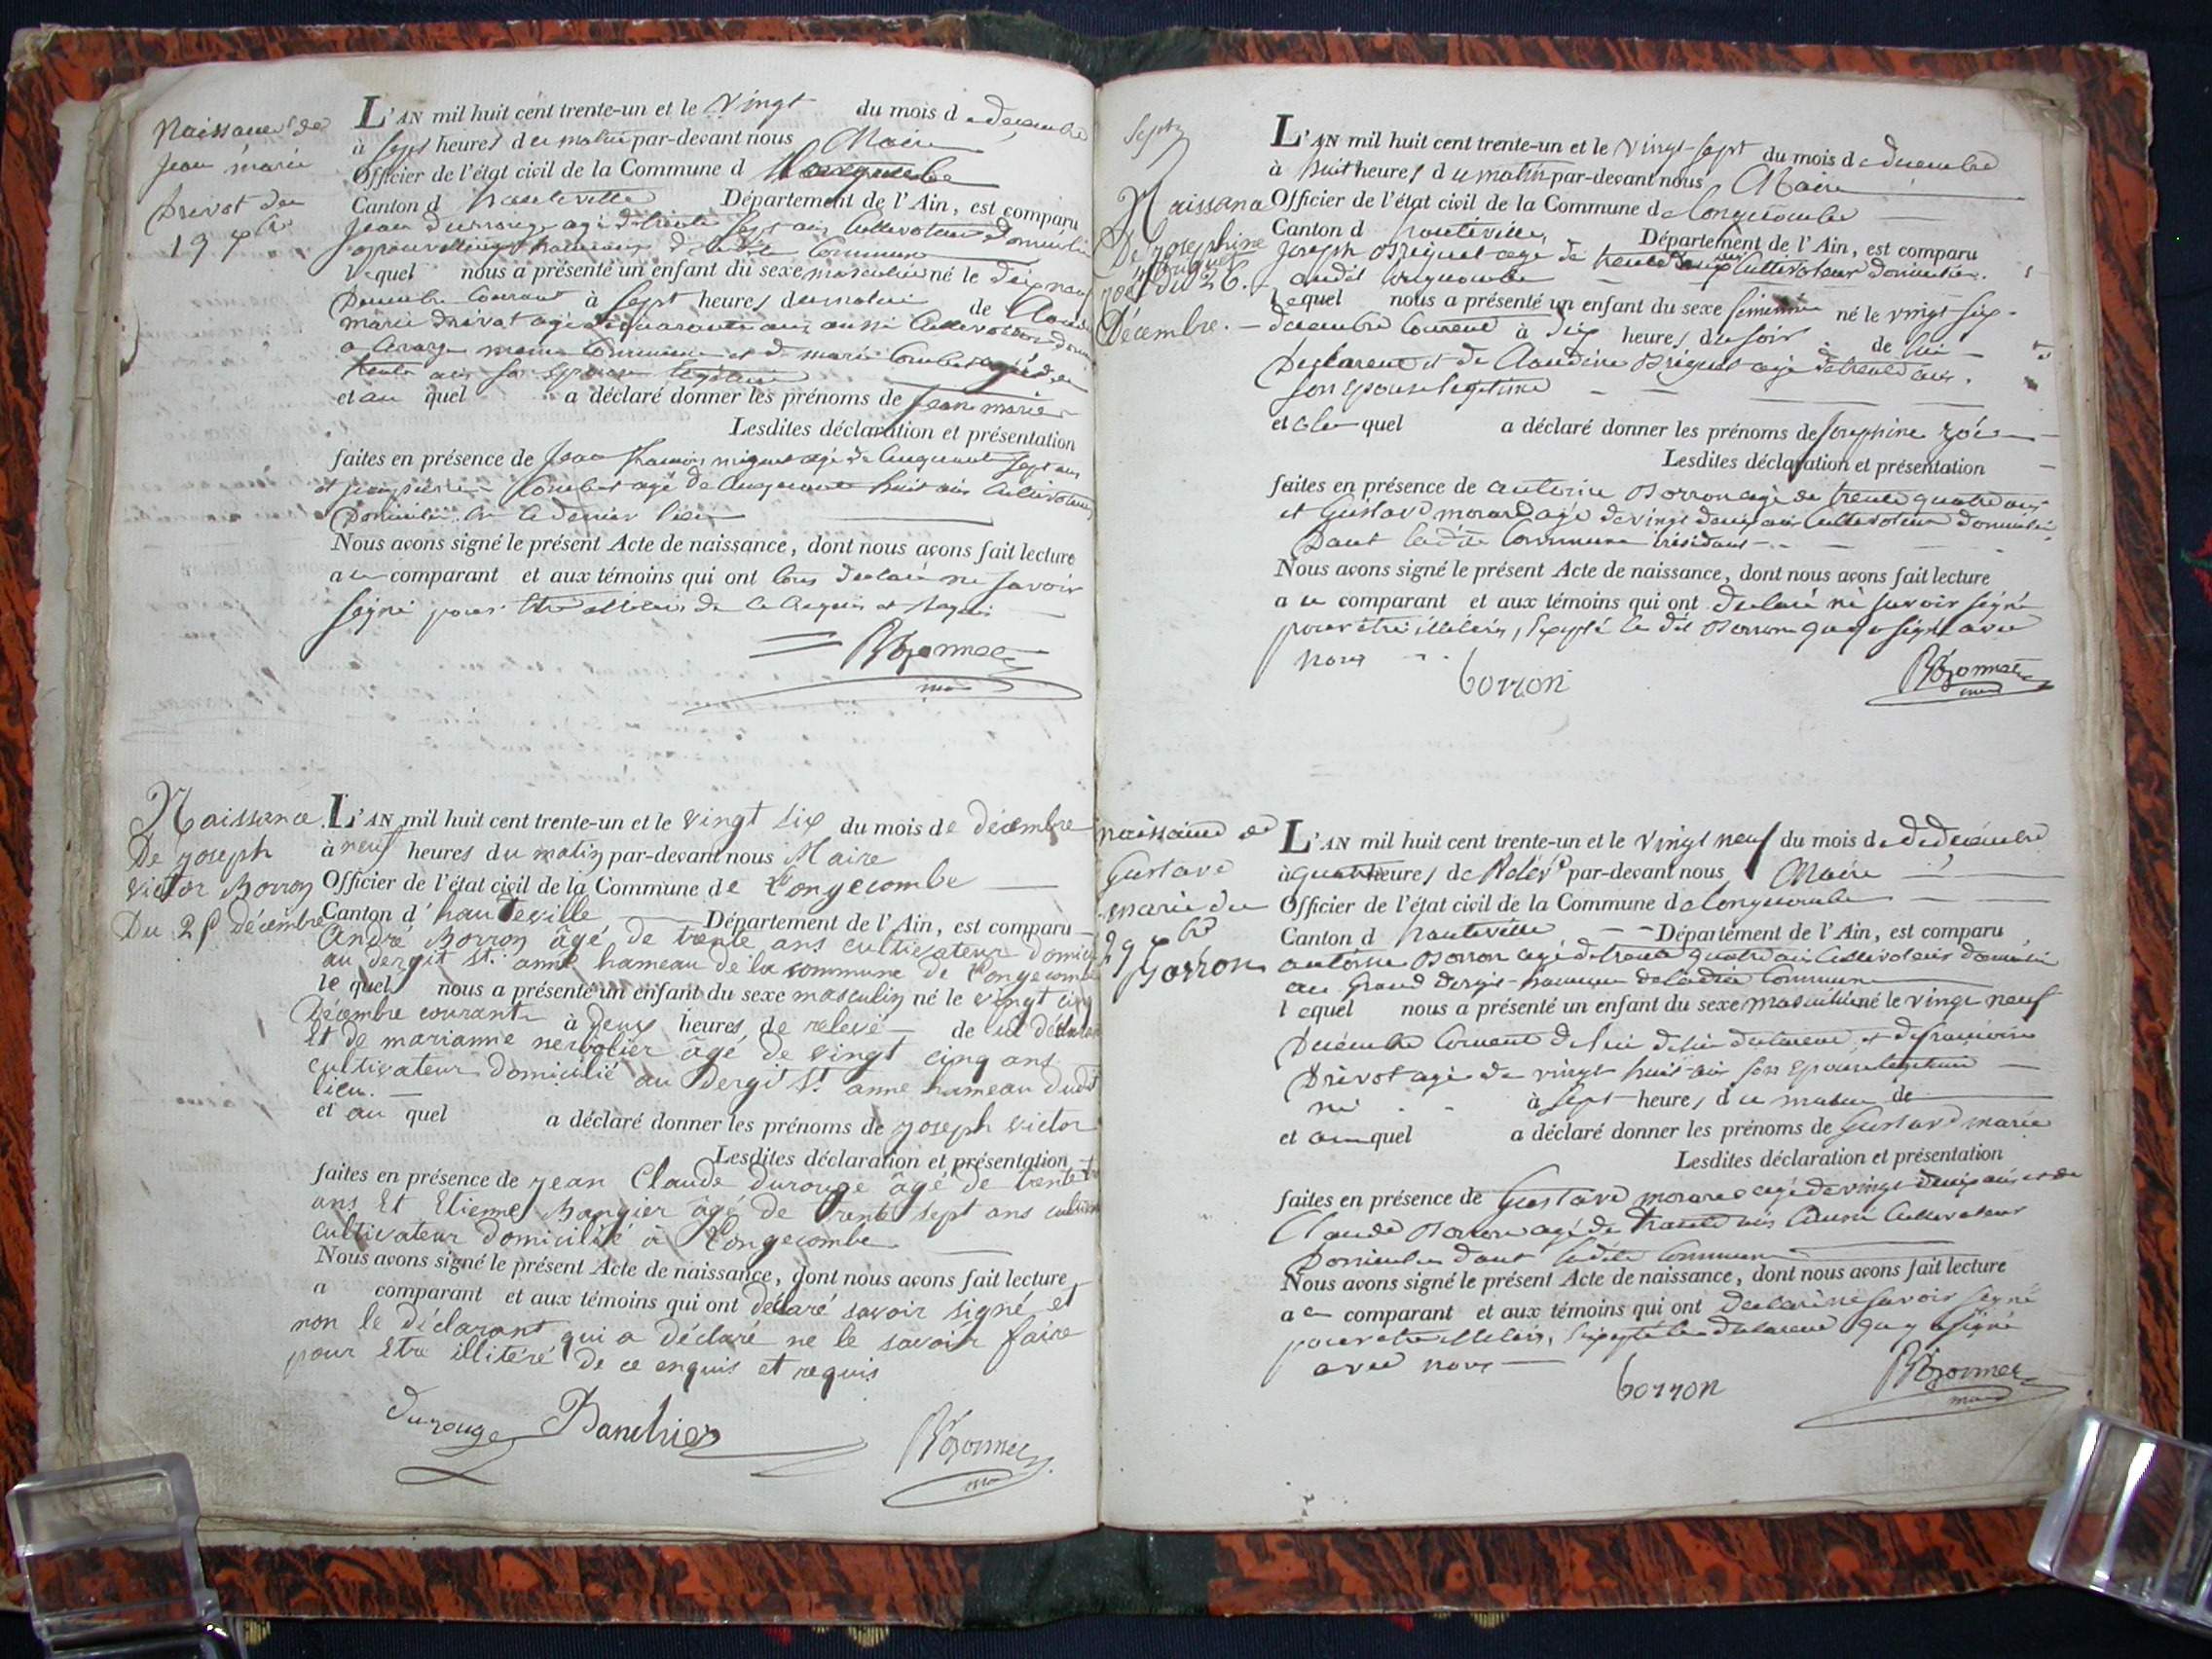 Naissance de
jean marie
Drivot du
19 xbre
L'AN mil huit cent trente-un et le Vingt du mois de décembre
à sept heures du matin par-devant nous Maire
Officier de l'état civil de la Commune d Longecombe
Canton d hauteville Département de l'Ain, est comparu
jean Durouge agé de trente sept ans Cultivateur Domicilié
hameau de Commune
lequel nous a présenté un enfant du sexe masculin né le dix neuf
Décembre Courant à sept heures du matin de
marie Drivot agé de quarante ans aussi Cultivateur
même Commune et de marie Combet agée de
trente ans son épouse légitime
et au quel a déclaré donner les prénoms de jean marie
Lesdites déclaration et présentation
faites en présence de jean miguet agé de Cinquante sept ans
et Combet agé de Cinquante huit ans Cultivateurs
Domiciliés le dernier lieu
Nous avons signé le présent Acte de naissance, dont nous avons fait lecture
au comparant et aux témoins qui ont tous déclaré ne savoir
signé pour être de ce Requis
Naissance
De joseph
victor Borron
Du 25 décembre
L'AN mil huit cent trente-un et le vingt six du mois de décembre
à neuf heures du matin par-devant nous Maire
Officier de l'état civil de la Commune de Longecombe
Canton d'hauteville Département de l'Ain, est comparu
André Borron âgé de trente ans cultivateur domicilié
au dergit St. anne hameau de la commune de Longecombe
le quel nous a présenté un enfant du sexe masculin né le vingt cinq
Décembre courant à deux heures de relevé de lui déclarant
Et de marianne âgé de vingt cinq ans
cultivateur domicilié au Dergit St. anne hameau dudit
lieu.
et au quel a déclaré donner les prénoms de joseph victor
Lesdites déclaration et présentation
faites en présence de jean Claude durouge âgé de trente
ans Et Etienne âgé de trente sept ans
cultivateur domicilié à Longecombe
Nous avons signé le présent Acte de naissance, dont nous avons fait lecture
a comparant et aux témoins qui ont déclaré savoir signé et
non le déclarant qui a déclaré ne le savoir faire
pour Etre illitéré de ce enquis et requis
durouge Banchier
Naissance
De josephine
zoé Du 26.
Décembre.
L'AN mil huit cent trente-un et le vingt sept du mois de décembre
à huit heures du matin par-devant nous Maire
Officier de l'état civil de la Commune de longecombe
Canton d hauteville, Département de l'Ain, est comparu
joseph agé de Cultivateur Domicilié
audit longecombe
lequel nous a présenté un enfant du sexe féminin né le vingt six
décembre Courant à dix heures du soir de lui
Déclarant et de Claudine agé de trente ans
son épouse légitime
et à la quel a déclaré donner les prénoms de josephine zoé
Lesdites déclaration et présentation
faites en présence de antoine Borron agé de trente quatre ans
et Gustave morard agé de vingt deux ans Cultivateurs domiciliés
Dans ladite Commune
Nous avons signé le présent Acte de naissance, dont nous avons fait lecture
au comparant et aux témoins qui ont déclaré ne savoir signé
pour être illitérés, Excepté le dit Borron qui a signé avec
nous
borron
naissance de
Gustave
marie du
29 xbre
Borron
L'AN mil huit cent trente-un et le vingt neuf du mois de décembre
à quatre heures de Relevé par-devant nous Maire
Officier de l'état civil de la Commune de longecombe
Canton d hauteville Département de l'Ain, est comparu
antoine Borron agé de trente quatre ans Cultivateur domicilié
au Grand Dergis hameau de ladite Commune
lequel nous a présenté un enfant du sexe masculin né le vingt neuf
Décembre Courant de lui déclarant et de françoise
Drivot agée de vingt huit ans son Epouse légitime
né à sept heures du matin de
et au quel a déclaré donner les prénoms de Gustave marie
Lesdites déclaration et présentation
faites en présence de Gustave morard agé de vingt deux ans et de
Claude Borron agé de trente ans aussi Cultivateur
Domiciliés dans ladite Commune
Nous avons signé le présent Acte de naissance, dont nous avons fait lecture
au comparant et aux témoins qui ont déclaré ne savoir signé
pour être illitérés, Excepté le déclarant qui a signé
avec nous
borron